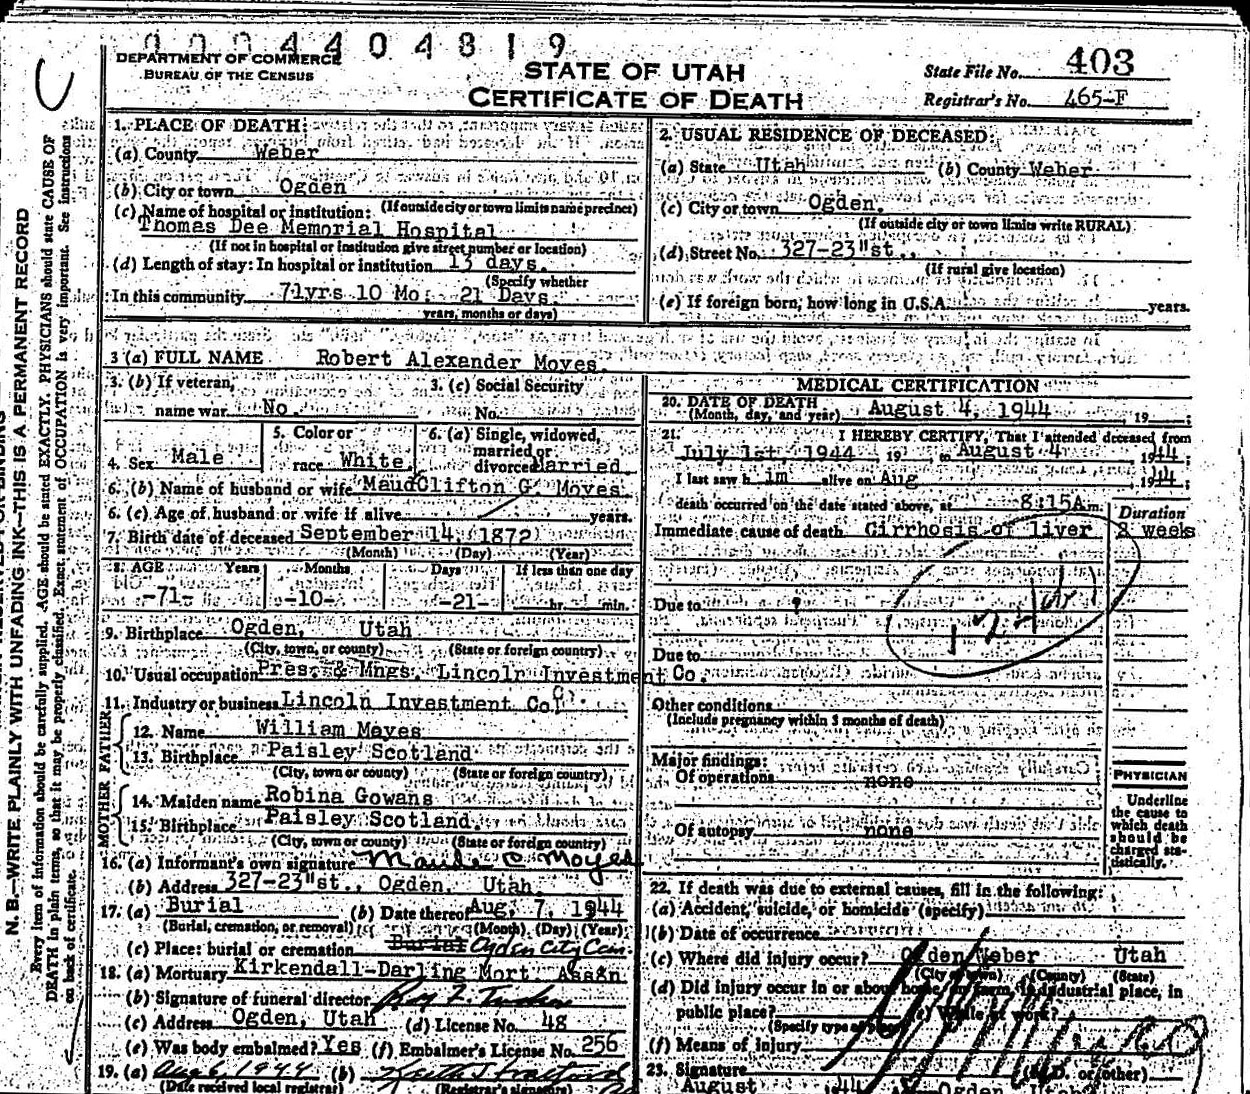 0004404819
DEPARTMENT OF COMMERCE
BUREAU OF THE CENSUS
STATE OF UTAH
CERTIFICATE OF DEATH
State File No. 403
Registrar's No. 465-F
N. B.—WRITE PLAINLY WITH UNFADING INK—THIS IS A PERMANENT RECORD
Every item of information should be carefully supplied. AGE should be stated EXACTLY. PHYSICIANS should state CAUSE OF
DEATH in plain terms, so that it may be properly classified. Exact statement of OCCUPATION is very important. See instructions
on back of certificate.
1. PLACE OF DEATH:
(a) County Weber
(b) City or town Ogden
(If outside city or town limits name precinct)
(c) Name of hospital or institution:
Thomas Dee Memorial Hospital
(If not in hospital or institution give street number or location)
(d) Length of stay: In hospital or institution 13 days.
(Specify whether
In this community 71yrs 10 Mo: 21 Days.
years, months or days)
2. USUAL RESIDENCE OF DECEASED:
(a) State Utah (b) County Weber
(c) City or town Ogden.
(If outside city or town limits write RURAL)
(d) Street No. 327-23"st.,
(If rural give location)
(e) If foreign born, how long in U.S.A. years.
3 (a) FULL NAME Robert Alexander Moyes.
3. (b) If veteran,
name war No.
3. (c) Social Security
No.
4. Sex Male
5. Color or
race White
6. (a) Single, widowed,
married or
divorced Married
6. (b) Name of husband or wife Maud Clifton G. Moyes
6. (c) Age of husband or wife if alive years.
7. Birth date of deceased September 14, 1872
(Month) (Day) (Year)
8. AGE Years Months Days If less than one day
-71- -10- -21- hr. min.
9. Birthplace Ogden, Utah
(City, town, or county) (State or foreign country)
10. Usual occupation Pres. & Mngs. Lincoln Investment Co.
11. Industry or business Lincoln Investment Co.
FATHER
12. Name William Moyes
13. Birthplace Paisley Scotland
(City, town or county) (State or foreign country)
MOTHER
14. Maiden name Robina Gowans
15. Birthplace Paisley Scotland.
(City, town or county) (State or foreign country)
16. (a) Informant's own signature Maude C Moyes
(b) Address 327-23"st., Ogden, Utah
17. (a) Burial (b) Date thereof Aug, 7, 1944
(Burial, cremation, or removal) (Month) (Day) (Year)
(c) Place: burial or cremation Burial Ogden City Cem
18. (a) Mortuary Kirkendall-Darling Mort. Assn
(b) Signature of funeral director
(c) Address Ogden, Utah (d) License No. 48
(e) Was body embalmed? Yes (f) Embalmer's License No. 256
19. (a) Aug 6, 1944 (b)
(Date received local registrar) (Registrar's signature)
MEDICAL CERTIFICATION
20. DATE OF DEATH
(Month, day, and year) August 4, 1944, 19 ;
21. I HEREBY CERTIFY, That I attended deceased from
July 1st 1944, 19 , to August 4 1944;
I last saw h im alive on Aug 1944
death occurred on the date stated above, at 8:15A m.
Duration
Immediate cause of death Cirrhosis of liver 2 weeks
Due to ?
Due to
Other conditions
(Include pregnancy within 3 months of death)
Major findings:
Of operations none
Of autopsy none
PHYSICIAN
Underline
the cause to
which death
should be
charged sta-
tistically.
22. If death was due to external causes, fill in the following:
(a) Accident, suicide, or homicide (specify)
(b) Date of occurrence
(c) Where did injury occur? Ogden Weber Utah
(City or town) (County) (State)
(d) Did injury occur in or about home, on farm, in industrial place, in
public place? (e) While at work?
(Specify type of place)
(f) Means of injury
23. Signature (M.D. or other)
August 44 Ogden Utah